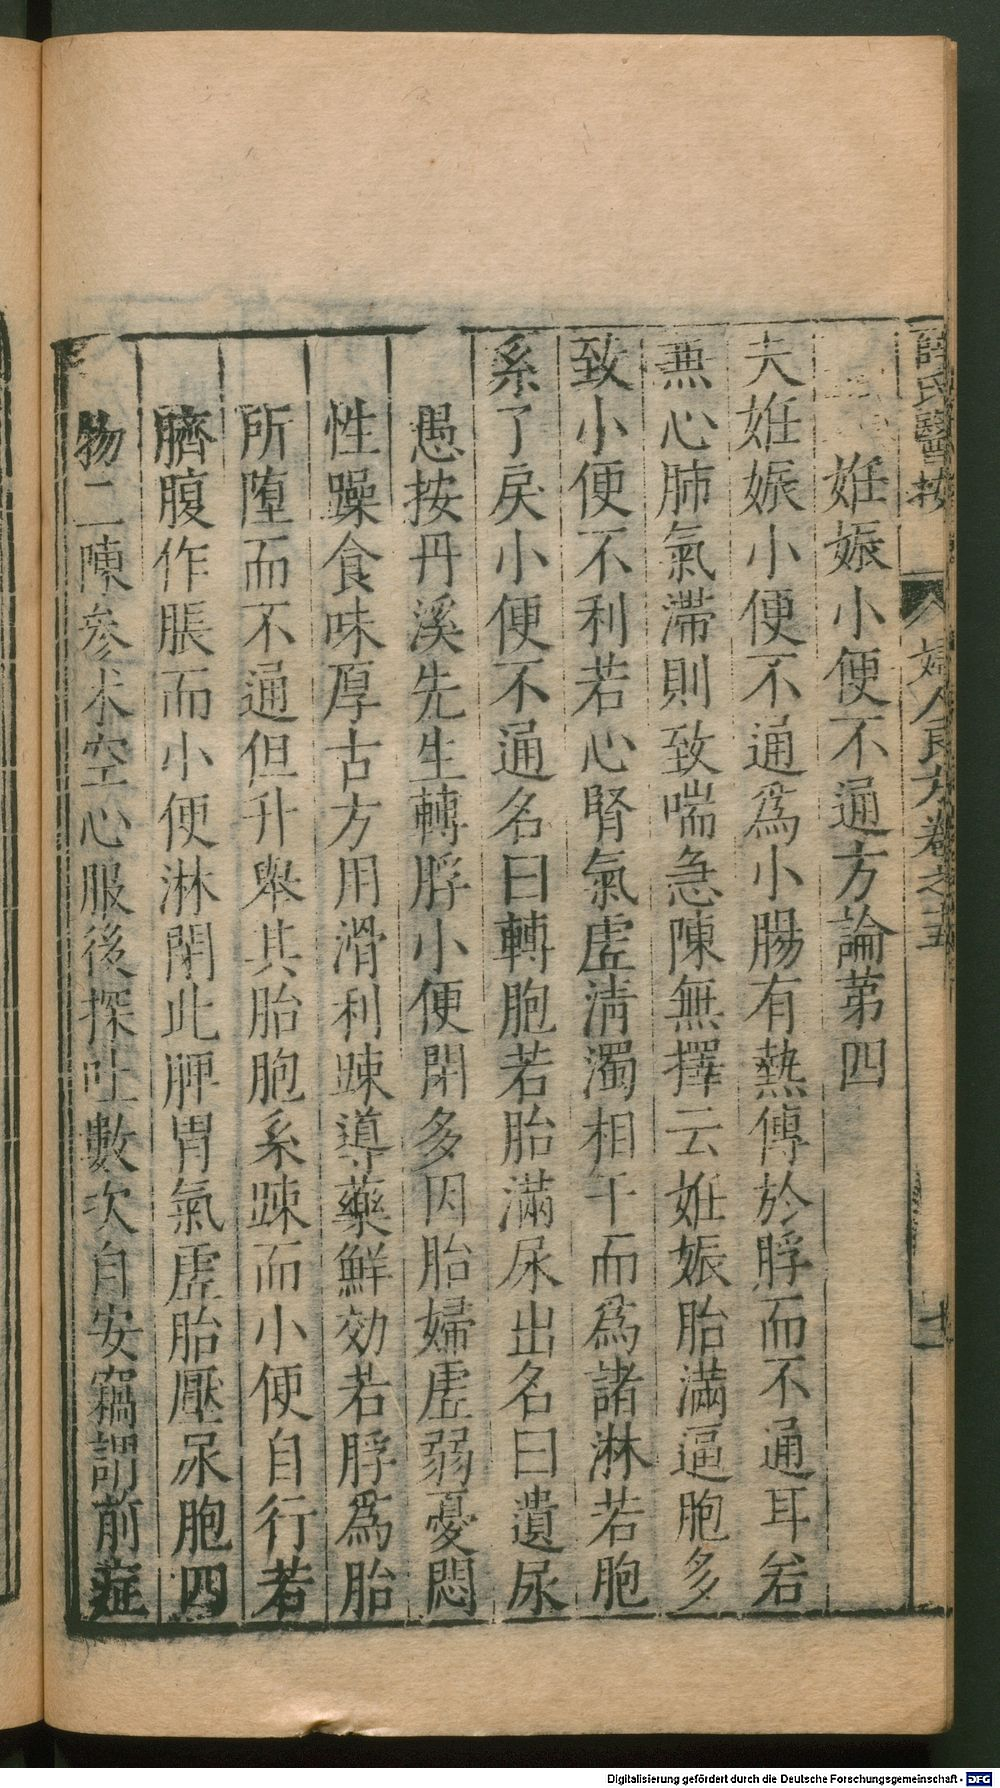 薛氏醫按 婦人良方卷之五 十一
妊娠小便不通方論第四
夫妊娠小便不通爲小腸有熱傳於脬而不通耳若
兼心肺氣滯則致喘急陳無擇云妊娠胎滿逼胞多
致小便不利若心腎氣虛淸濁相干而爲諸淋若胞
系了戾小便不通名曰轉胞若胎滿尿出名曰遺尿
愚按丹溪先生轉脬小便閉多因胎婦虛弱憂悶
性躁食味厚古方用滑利踈導藥鮮効若脬爲胎
所墮而不通但升舉其胎胞系踈而小便自行若
臍腹作脹而小便淋閉此脾胃氣虛胎壓尿胞四
物二陳參朮空心服後探吐數次自安竊謂前症
Digitalisierung gefördert durch die Deutsche Forschungsgemeinschaft - DFG